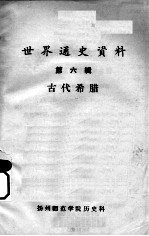 世界通史資料
第六輯
古代希腊
扬州师范学院历史科